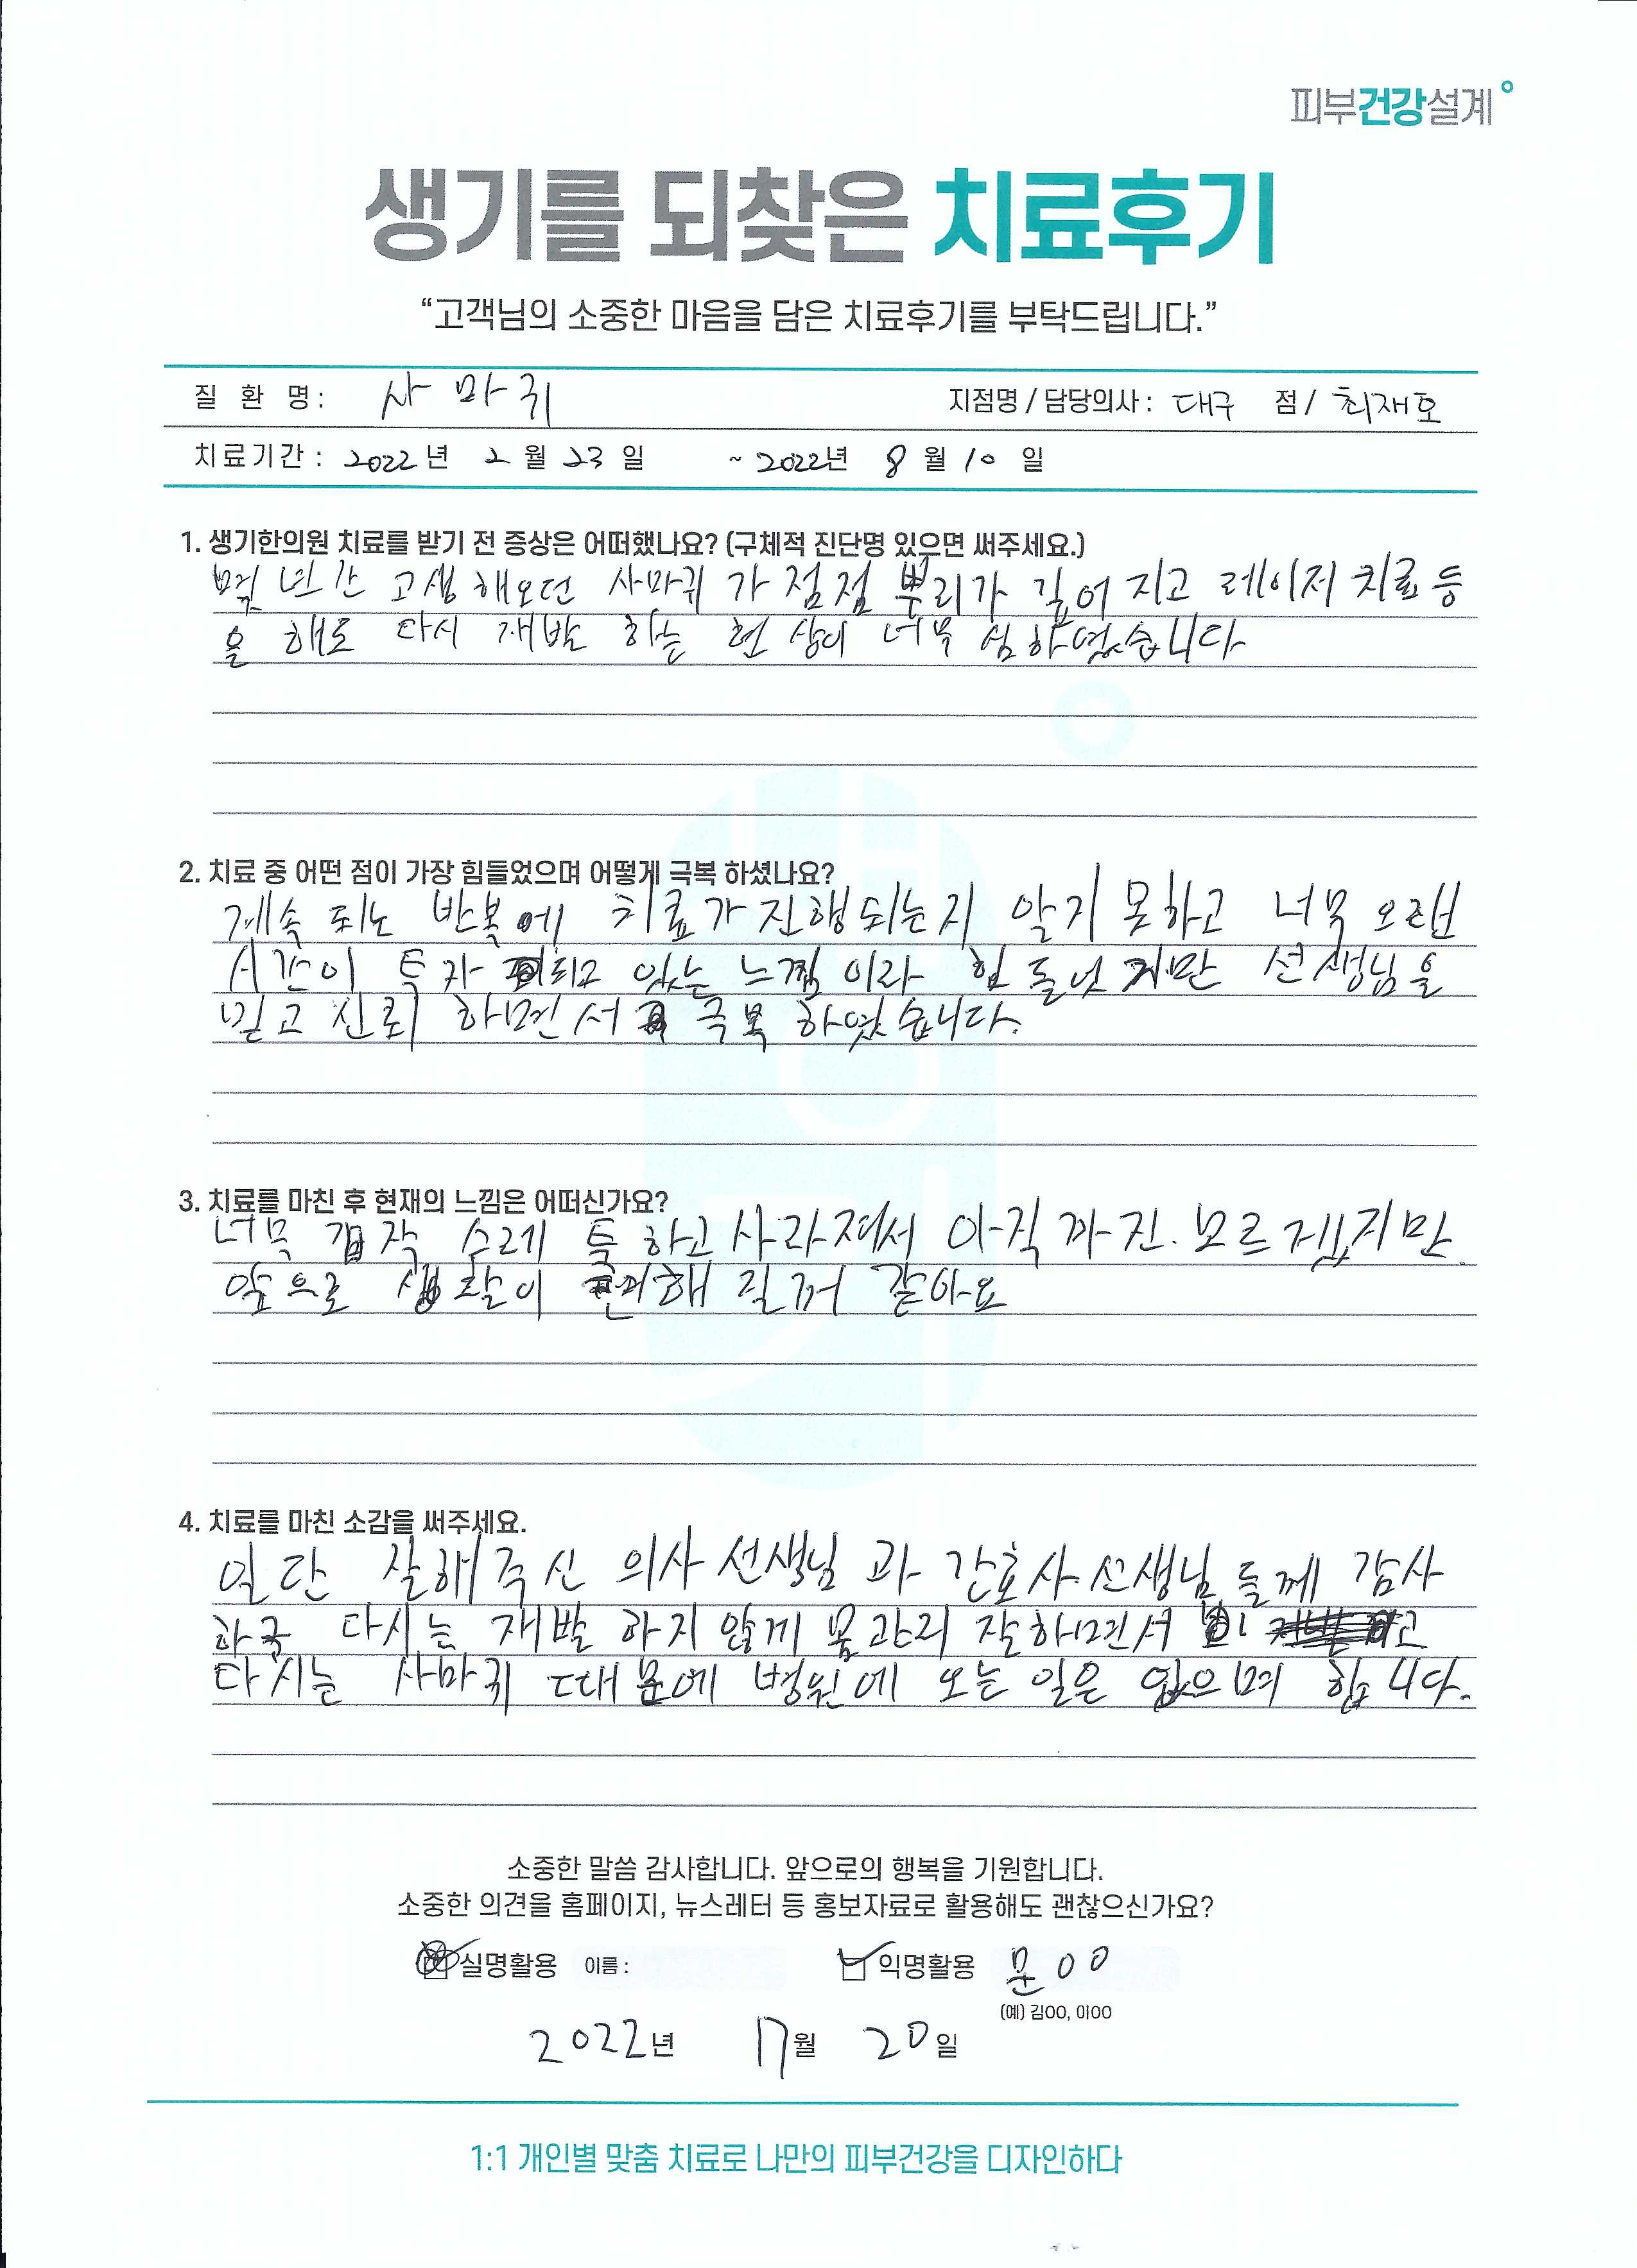 피부건강설계
생기를 되찾은 치료후기
“고객님의 소중한 마음을 담은 치료후기를 부탁드립니다.”
질 환 명 : 사마귀 지점명 / 담당의사 : 대구 점 / 최재호
치료기간 : 2022 년 2 월 23 일 ~ 2022 년 8 월 10 일
1. 생기한의원 치료를 받기 전 증상은 어떠했나요? (구체적 진단명 있으면 써주세요.)
몇 년간 고생해오던 사마귀가 점점 뿌리가 깊어 지고 레이저 치료 등
을 해도 다시 재발 하는 현상이 너무 심하였습니다
2. 치료 중 어떤 점이 가장 힘들었으며 어떻게 극복 하셨나요?
계속 되는 반복에 치료가 진행되는지 알지 못하고 너무 오랜
시간이 투자 되고 있는 느낌이라 힘들었지만 선생님을
믿고 신뢰 하면서 극복 하였습니다.
3. 치료를 마친 후 현재의 느낌은 어떠신가요?
너무 갑작 스레 툭 하고 사라져서 아직까진 모르겠지만
앞으로 생활이 편해 질꺼 같아요
4. 치료를 마친 소감을 써주세요.
일단 잘해주신 의사 선생님과 간호사 선생님들께 감사
하고 다시는 재발 하지 않게 몸관리 잘하면서
다시는 사마귀 때문에 병원에 오는 일은 없으며 합니다.
소중한 말씀 감사합니다. 앞으로의 행복을 기원합니다.
소중한 의견을 홈페이지, 뉴스레터 등 홍보자료로 활용해도 괜찮으신가요?
실명활용 이름 : 익명활용 문OO
(예) 김OO, 이OO
2022 년 월 20 일
1:1 개인별 맞춤 치료로 나만의 피부건강을 디자인하다